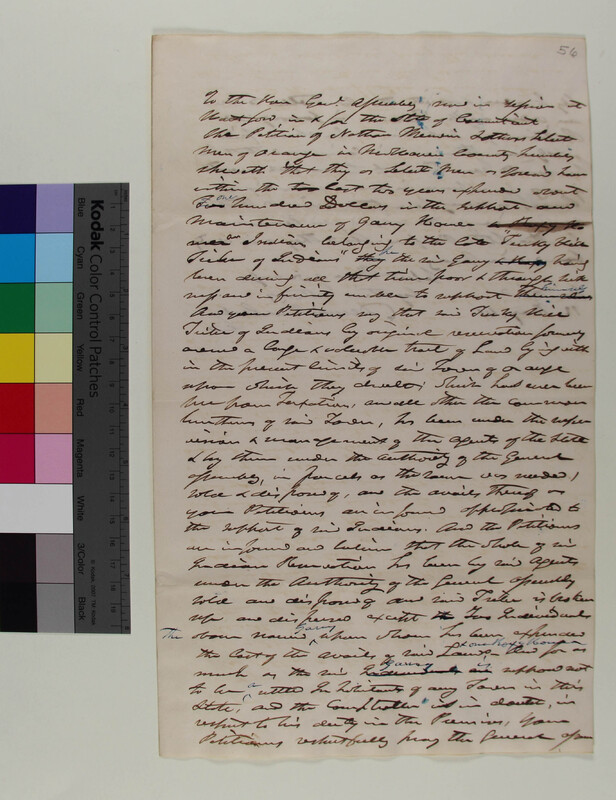 56
To the Hon Genl. Assembly now in session at
Hartford in & for the State of Connecticut
The Petition of Nathan Merwin & others Select
Men of Orange in New Haven County humbly
sheweth that they as Select Men as aforesaid have
within the two last two years expended about
one hundred Dollars in the support and
maintenance of Garry Howe
an Indian belonging to the late "Turkey Hill
Tribe of Indians" the said Garry having
been during all that time poor & through sick
ness and infirmity unable to support himself
And your Petitioners say that said Turkey Hill
Tribe of Indians by original reservation formerly
owned a large & valuable tract of Land lying with
in the present limits of said Town of Orange
upon which they dwelt; which had ever been
free from Taxation, and all other the common
burthens of said Town, has been under the super
vision & management of the Agents of the State
& by them under the Authority of the General
Assembly, in parcels as the same was needed,
sold & disposed of, and the avails thereof as
your Petitioners are informed appropriated to
the support of said Indians. And the Petitioners
are informed and believe that the whole of said
Indian Reservation has been by said Agents
under the Authority of the General Assembly
sold and disposed of and said Tribe is broken
up and dispersed except the Two Individuals
The above named Garry when whom has been expended
the last of the avails of said Land, And for as
much as the said Garry is supposed not
to be a settled Inhabitant of any Town in this
State, and the Comptroller is in doubt, in
respect to his duty in the Premises, Your
Petitioners respectfully pray the General Assem
Kodak Color Control Patches
Blue
Cyan
Green
Yellow
Red
Magenta
White
3/Color
Black